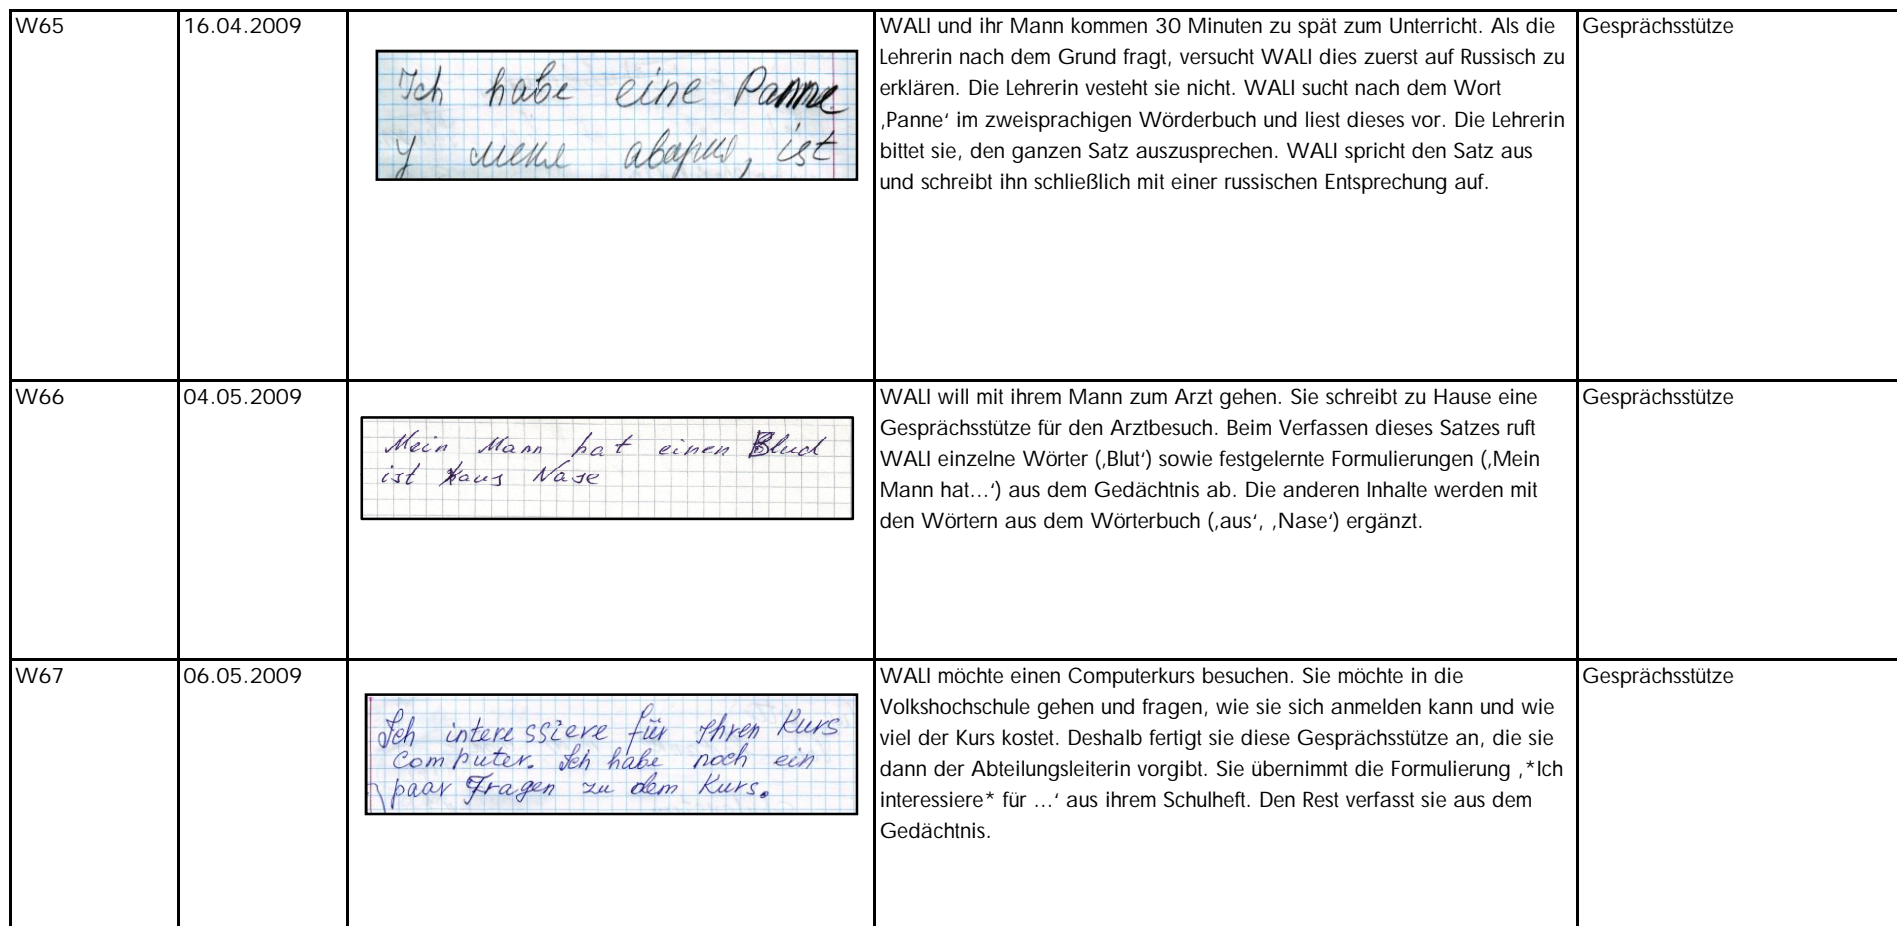 W65
16.04.2009
Ich habe eine Panne
У меня авария, ist
WALI und ihr Mann kommen 30 Minuten zu spät zum Unterricht. Als die
Lehrerin nach dem Grund fragt, versucht WALI dies zuerst auf Russisch zu
erklären. Die Lehrerin vesteht sie nicht. WALI sucht nach dem Wort
‚Panne‘ im zweisprachigen Wörderbuch und liest dieses vor. Die Lehrerin
bittet sie, den ganzen Satz auszusprechen. WALI spricht den Satz aus
und schreibt ihn schließlich mit einer russischen Entsprechung auf.
Gesprächsstütze
W66
04.05.2009
Mein Mann hat einen Blud
ist aus Nase
WALI will mit ihrem Mann zum Arzt gehen. Sie schreibt zu Hause eine
Gesprächsstütze für den Arztbesuch. Beim Verfassen dieses Satzes ruft
WALI einzelne Wörter (‚Blut‘) sowie festgelernte Formulierungen (‚Mein
Mann hat…‘) aus dem Gedächtnis ab. Die anderen Inhalte werden mit
den Wörtern aus dem Wörterbuch (‚aus‘, ‚Nase‘) ergänzt.
Gesprächsstütze
W67
06.05.2009
Ich interessiere für Ihren Kurs
Computer. Ich habe noch ein
paar Fragen zu dem Kurs.
WALI möchte einen Computerkurs besuchen. Sie möchte in die
Volkshochschule gehen und fragen, wie sie sich anmelden kann und wie
viel der Kurs kostet. Deshalb fertigt sie diese Gesprächsstütze an, die sie
dann der Abteilungsleiterin vorgibt. Sie übernimmt die Formulierung ‚*Ich
interessiere* für …‘ aus ihrem Schulheft. Den Rest verfasst sie aus dem
Gedächtnis.
Gesprächsstütze